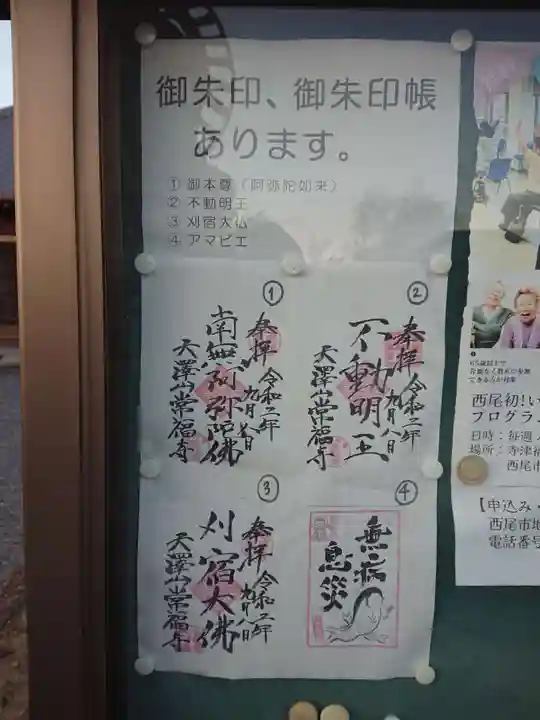 御朱印、御朱印帳
あります。
① 御本尊（阿弥陀如来）
② 不動明王
③ 刈宿大仏
④ アマビエ
①
奉拝 令和二年
九月八日
南無阿弥陀佛
天澤山常福寺
②
奉拝 令和二年
九月八日
不動明王
天澤山常福寺
③
奉拝 令和二年
九月八日
刈宿大佛
天澤山常福寺
④
無病
息災
65歳以上で
できる方が対象
西尾初！い
プログラム
日時：毎週
場所：寺津福
西尾市
【申込み・
西尾市地
電話番号